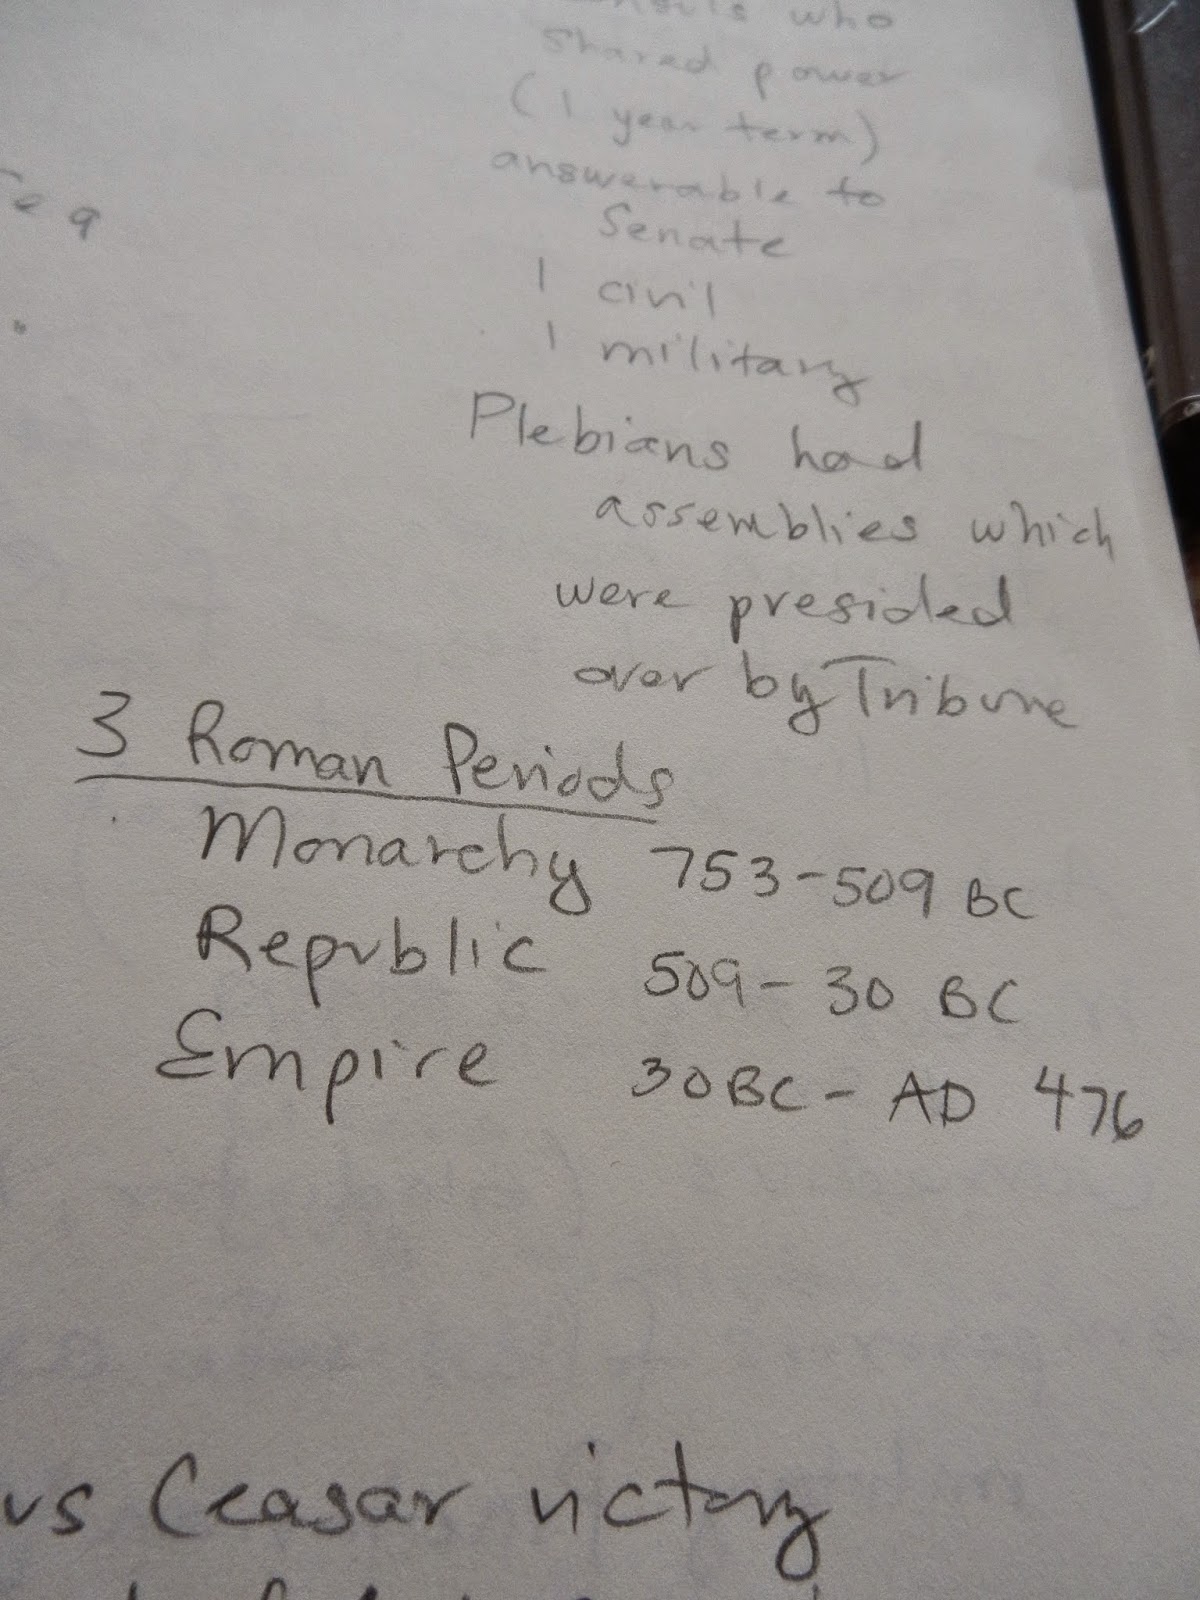 who
shared power
(1 year term)
answerable to
Senate
1 civil
1 military
Plebians had
assemblies which
were presided
over by Tribune
3 Roman Periods
Monarchy 753-509 BC
Republic 509-30 BC
Empire 30BC-AD 476
us Ceasar victory